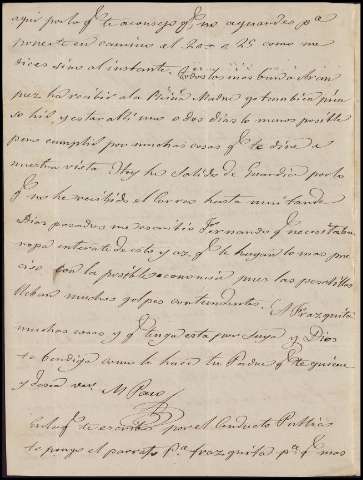 aqui por lo q.e te aconsejo q.e no aguardes p.a
ponerte en camino el 20 o el 25 como me
dices sino al instante. Todos los mas van a Aran
juez ha recibir a la Reina Madre yo tambien pien
so hir, y estar alli uno o dos dias lo menos posible
pero cumplir por muchas cosas q.e te dire a
nuestra vista. Hoy he salido de Guardia por lo
q.e no he recibido el Correo hasta mui tarde
Dias pasados me escribio Fernando q.e necesitaba
ropa enterate de esto y haz q.e le hagan lo mas pre
ciso con la posible economia pues las pesetillas
llevan muchos golpes contundentes. A Frazquita
muchas cosas y q.e tenga esta por suya y Dios
te bendiga como lo hace tu Padre q.e te quiere
y desea ver M Paco
En la q.e te escribo por el Conducto Publico
te pongo el parrafo p.a Frazquita p.a q.e mas